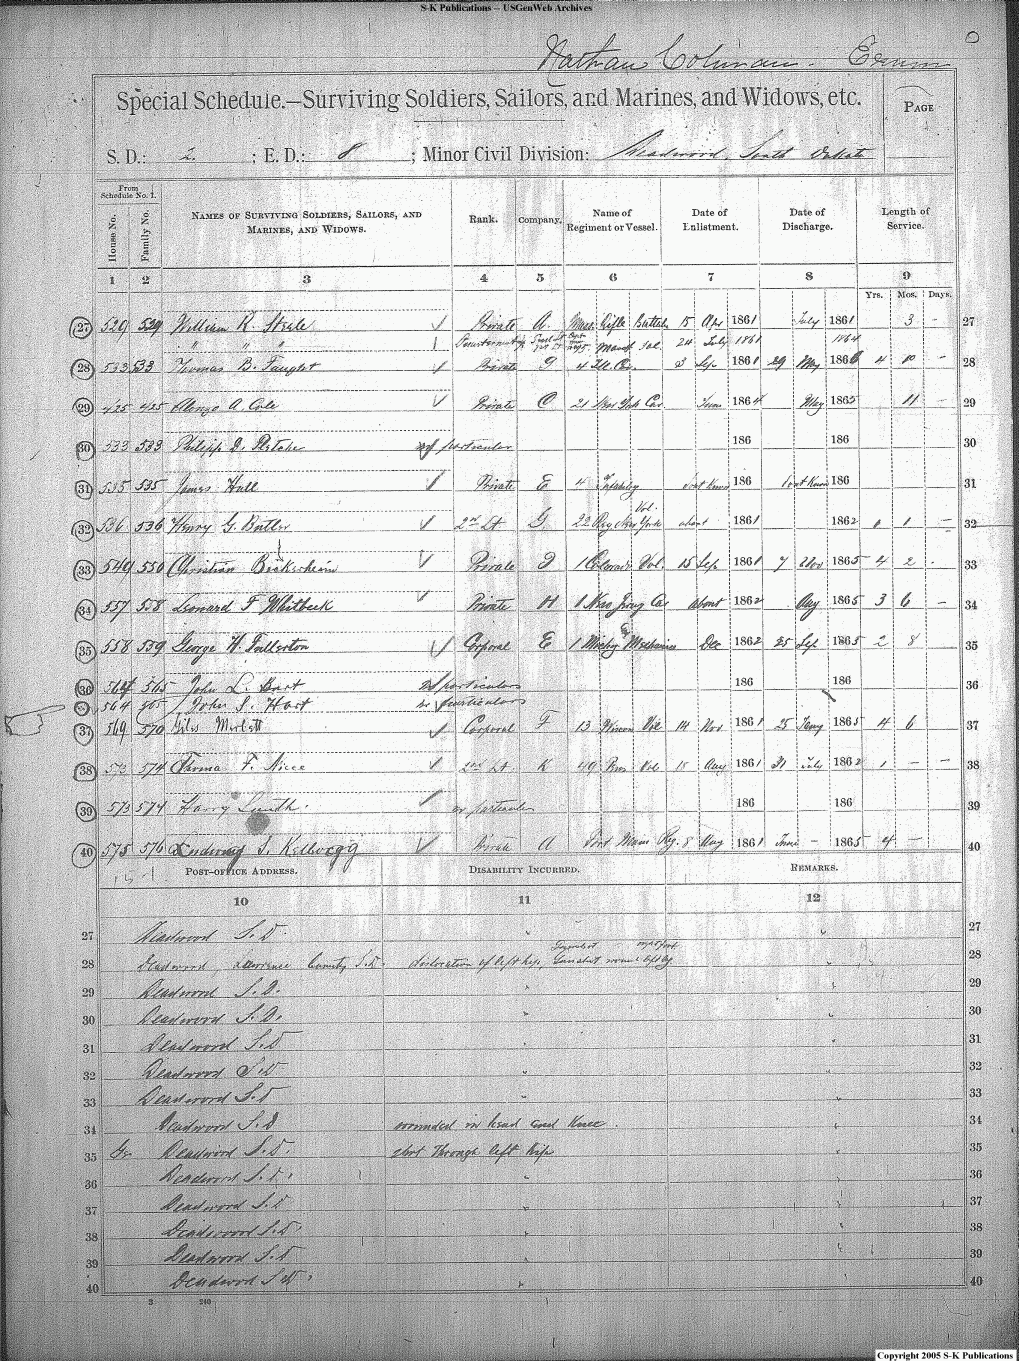 S-K Publications – USGenWeb Archives
Nathan Colman.
Special Schedule.—Surviving Soldiers, Sailors, and Marines, and Widows, etc.
PAGE
S. D.: 2. ; E. D.: 8 ; Minor Civil Division: Deadwood, South Dakota
From Schedule No. 1.
House No. Family No. NAMES OF SURVIVING SOLDIERS, SAILORS, AND MARINES, AND WIDOWS. Rank. Company. Name of Regiment or Vessel. Date of Enlistment. Date of Discharge. Length of Service.
1 2 3 4 5 6 7 8 9
Yrs. Mos. Days.
27 529 529 William R. Steele Private A. Mass. Rifle 15 Apr 1861 July 1861 3 - 27
" " " 24 July 1861 1864
28 533 533 Thomas B. Faught Private G 4 Cav. 3 Sep 1861 29 May 1866 4 10 - 28
29 425 425 Alonzo A. Cole Private C 21 New York Cav June 1864 May 1865 11 - 29
30 533 533 Philipp D. particular 186 186 30
31 535 535 James Hull Private E 4 Infantry dont know 186 dont know 186 31
32 536 536 Henry G. Butler 2nd Lt G 22 Reg New York Vol. about 1861 1862 1 - 32
33 549 550 Christian Private 1 Colorado Vol. 15 Sep 1861 7 Nov 1865 4 2 - 33
34 557 558 Leonard F Whitbeck Private H 1 New Cav about 1862 Aug 1865 3 6 - 34
35 558 559 George H. Fullerton Corporal E 1 Dec 1862 25 Sep 1865 2 8 35
36 564 565 John L. particulars 186 186 36
564 565 John S. Hart no particulars
37 569 570 Giles Corporal F 13 Vol 14 Nov 1861 25 Jany 1865 4 6 37
38 573 574 F. 2nd Lt. K 49 Vol 18 Aug 1861 31 July 1862 1 - - 38
39 573 574 Harry Smith. no particular 186 186 39
40 575 576 S. Kellogg Private A First Main Reg. 8 Aug 1861 June - 1865 4 - 40
POST-OFFICE ADDRESS. DISABILITY INCURRED. REMARKS.
10 11 12
27 Deadwood S. D. " " 27
28 Deadwood, Lawrence County S.D. dislocation of left hip, Gunshot wound left leg " 28
29 Deadwood S. D. " " 29
30 Deadwood S. D. " " 30
31 Deadwood S. D " " 31
32 Deadwood S. D " " 32
33 Deadwood S. D " 33
34 Deadwood S. D wounded in head and Knee. " 34
35 Deadwood S. D. shot through left hip " 35
36 Deadwood S. D. " " 36
37 Deadwood S. D " " 37
38 Deadwood S. D. " " 38
39 Deadwood S. D " " 39
40 Deadwood S. D. " " 40
3 240
Copyright 2005 S-K Publications